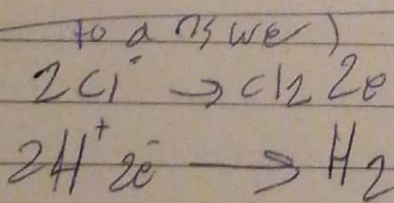 to answer)
2Cl⁻ → Cl2 2e
2H⁺ 2e⁻ → H2